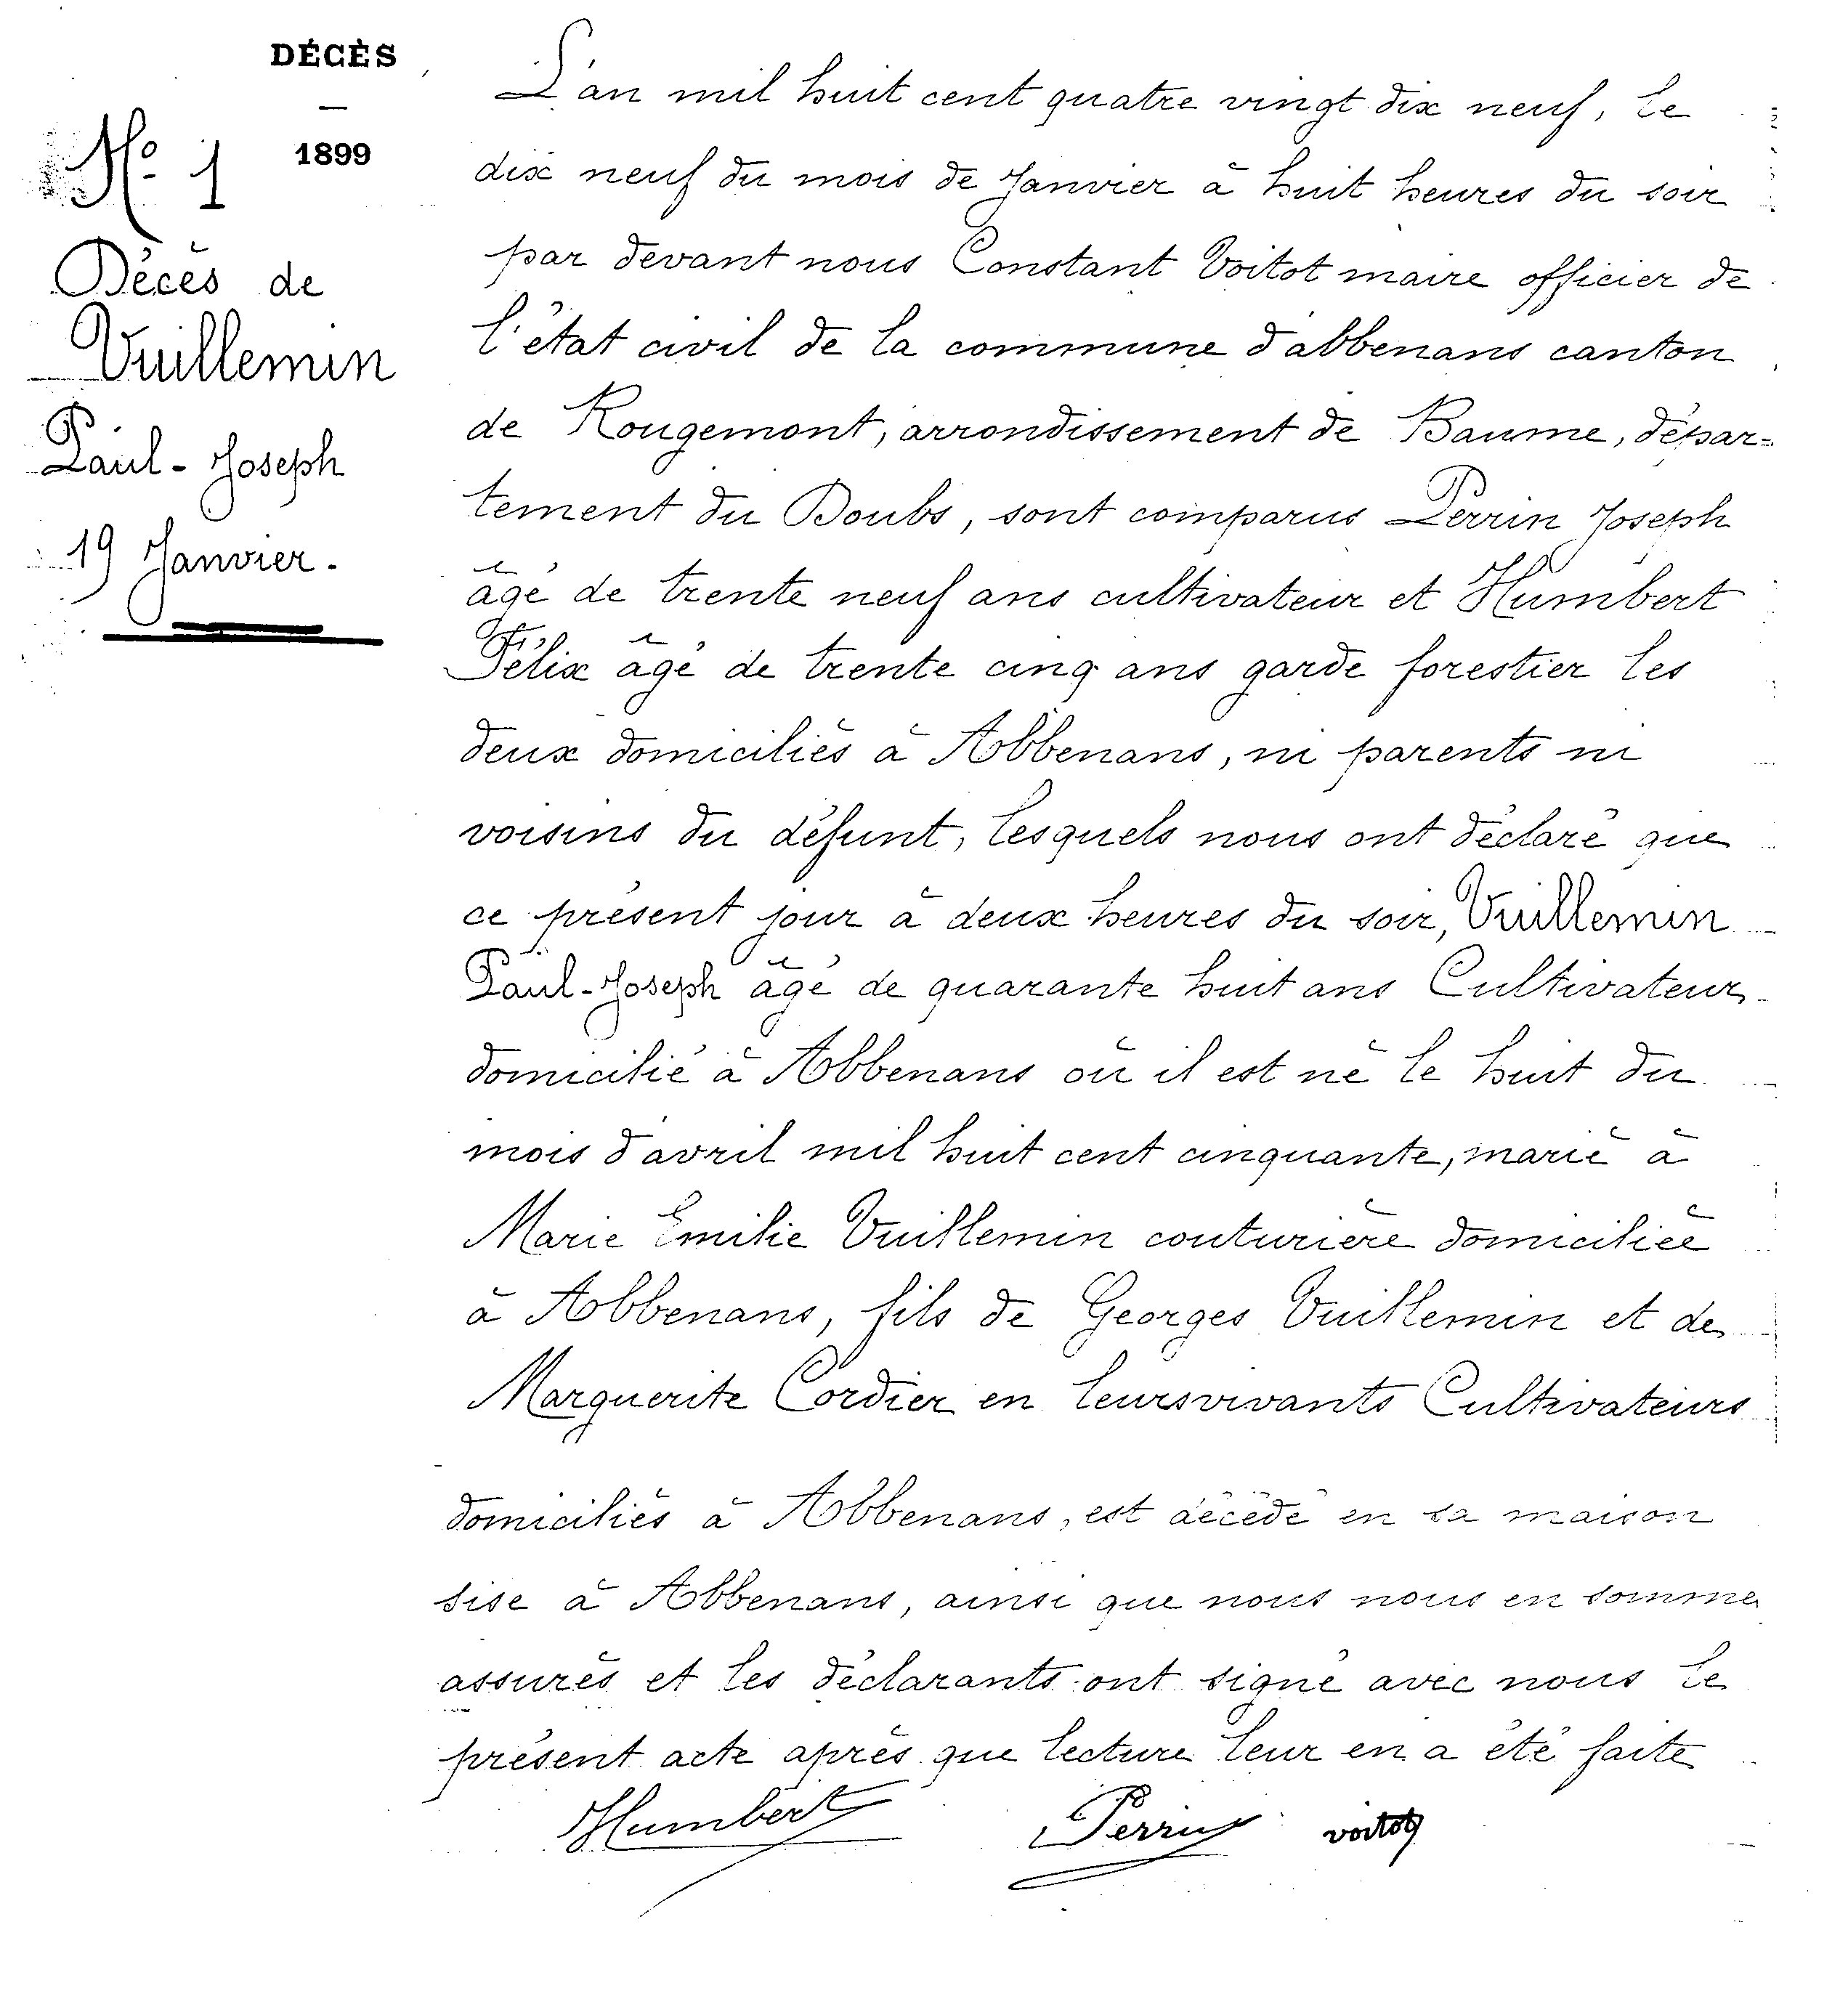 DÉCÈS
—
1899
N° 1
Décès de
Vuillemin
Paul-Joseph
19 Janvier.
L'an mil huit cent quatre vingt dix neuf, le
dix neuf du mois de Janvier à huit heures du soir
par devant nous Constant Voitot maire officier de
l'état civil de la commune d'abbenans canton
de Rougemont, arrondissement de Baume, dépar=
tement du Doubs, sont comparus Perrin Joseph
âgé de trente neuf ans cultivateur et Humbert
Félix âgé de trente cinq ans garde forestier les
deux domiciliés à Abbenans, ni parents ni
voisins du défunt, lesquels nous ont déclaré que
ce présent jour à deux heures du soir, Vuillemin
Paul-Joseph âgé de quarante huit ans Cultivateur
domicilié à Abbenans où il est né le huit du
mois d'avril mil huit cent cinquante, marié à
Marie Emilie Vuillemin couturière domiciliée
à Abbenans, fils de Georges Vuillemin et de
Marguerite Cordier en leurs vivants Cultivateurs
domiciliés à Abbenans, est décédé en sa maison
sise à Abbenans, ainsi que nous nous en somme
assurés et les déclarants ont signé avec nous le
présent acte après que lecture leur en a été faite
Humbert Perrin voitot